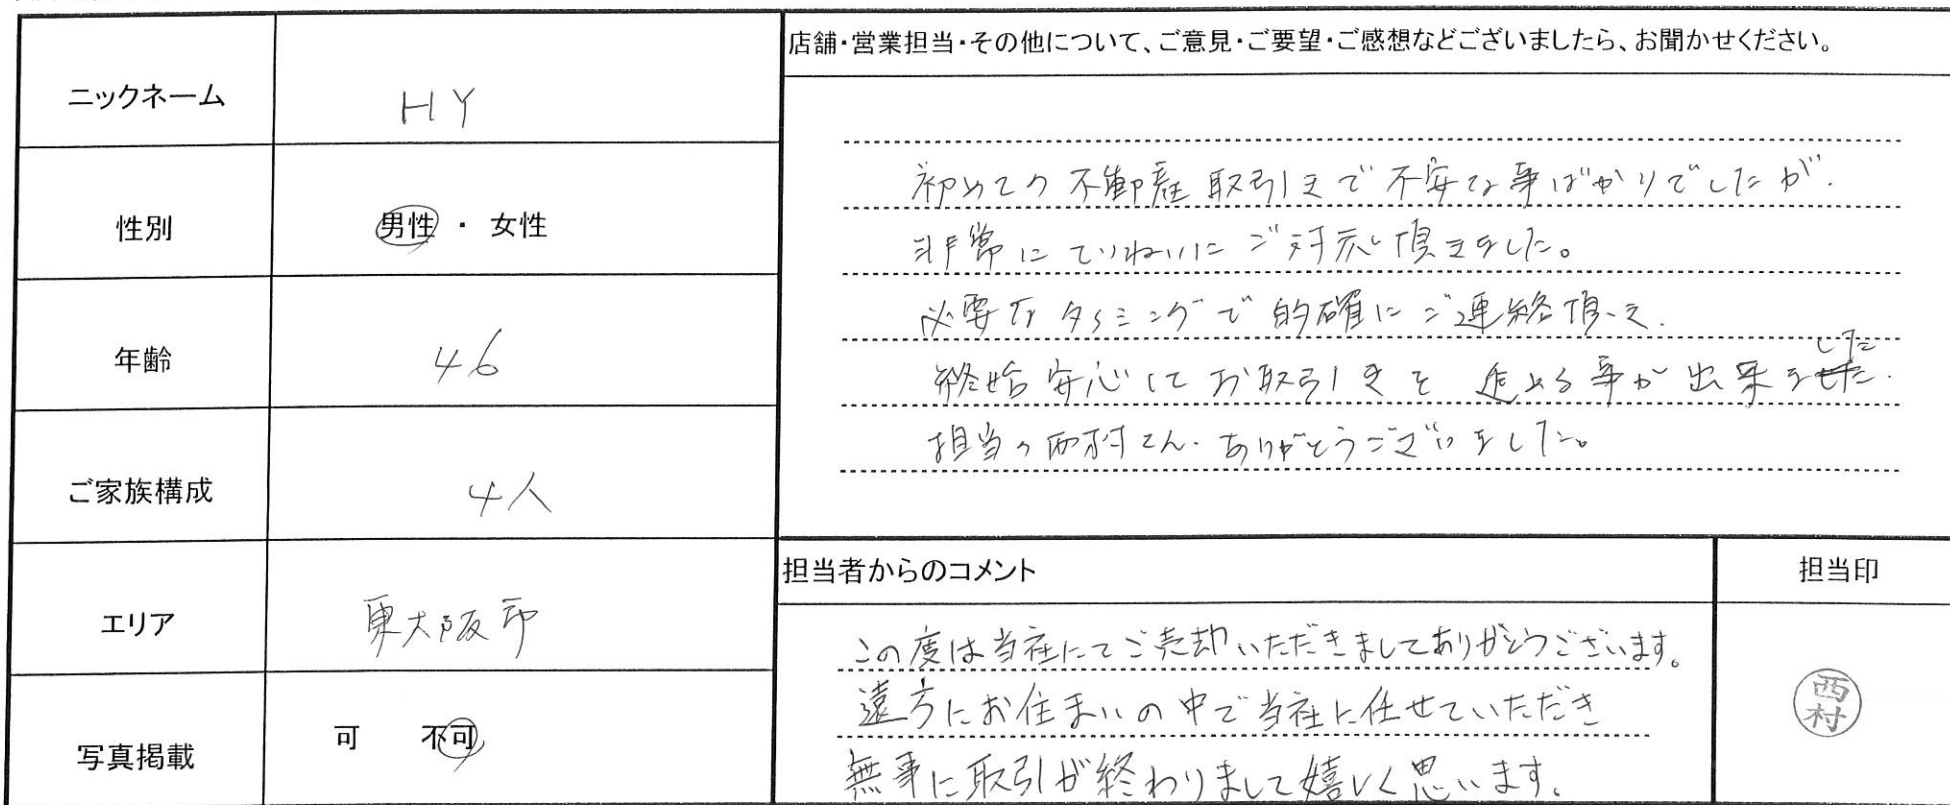 ニックネーム
HY
性別
男性 ・ 女性
年齢
46
ご家族構成
4人
エリア
東大阪市
写真掲載
可 不可
店舗・営業担当・その他について、ご意見・ご要望・ご感想などございましたら、お聞かせください。
初めての不動産取引きで不安な事ばかりでしたが、
非常にていねいにご対応頂きました。
必要なタイミングで的確にご連絡頂き、
終始安心してお取引きを進める事が出来ました。
担当の西村さん、ありがとうございました。
担当者からのコメント
この度は当社にてご売却いただきましてありがとうございます。
遠方にお住まいの中で当社に任せていただき
無事に取引が終わりまして嬉しく思います。
担当印
西村